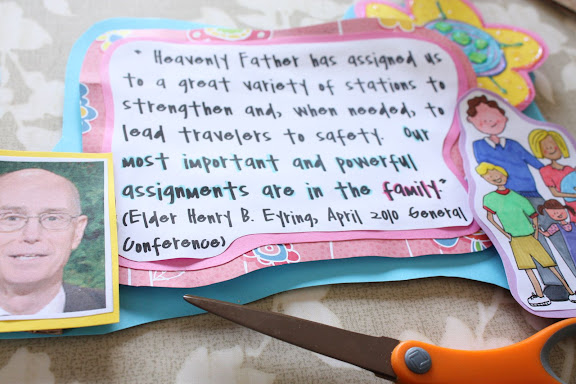 " Heavenly Father has assigned us
to a great variety of stations to
strengthen and, when needed, to
lead travelers to safety. Our
most important and powerful
assignments are in the family."
(Elder Henry B. Eyring, April 2010 General
Conference)